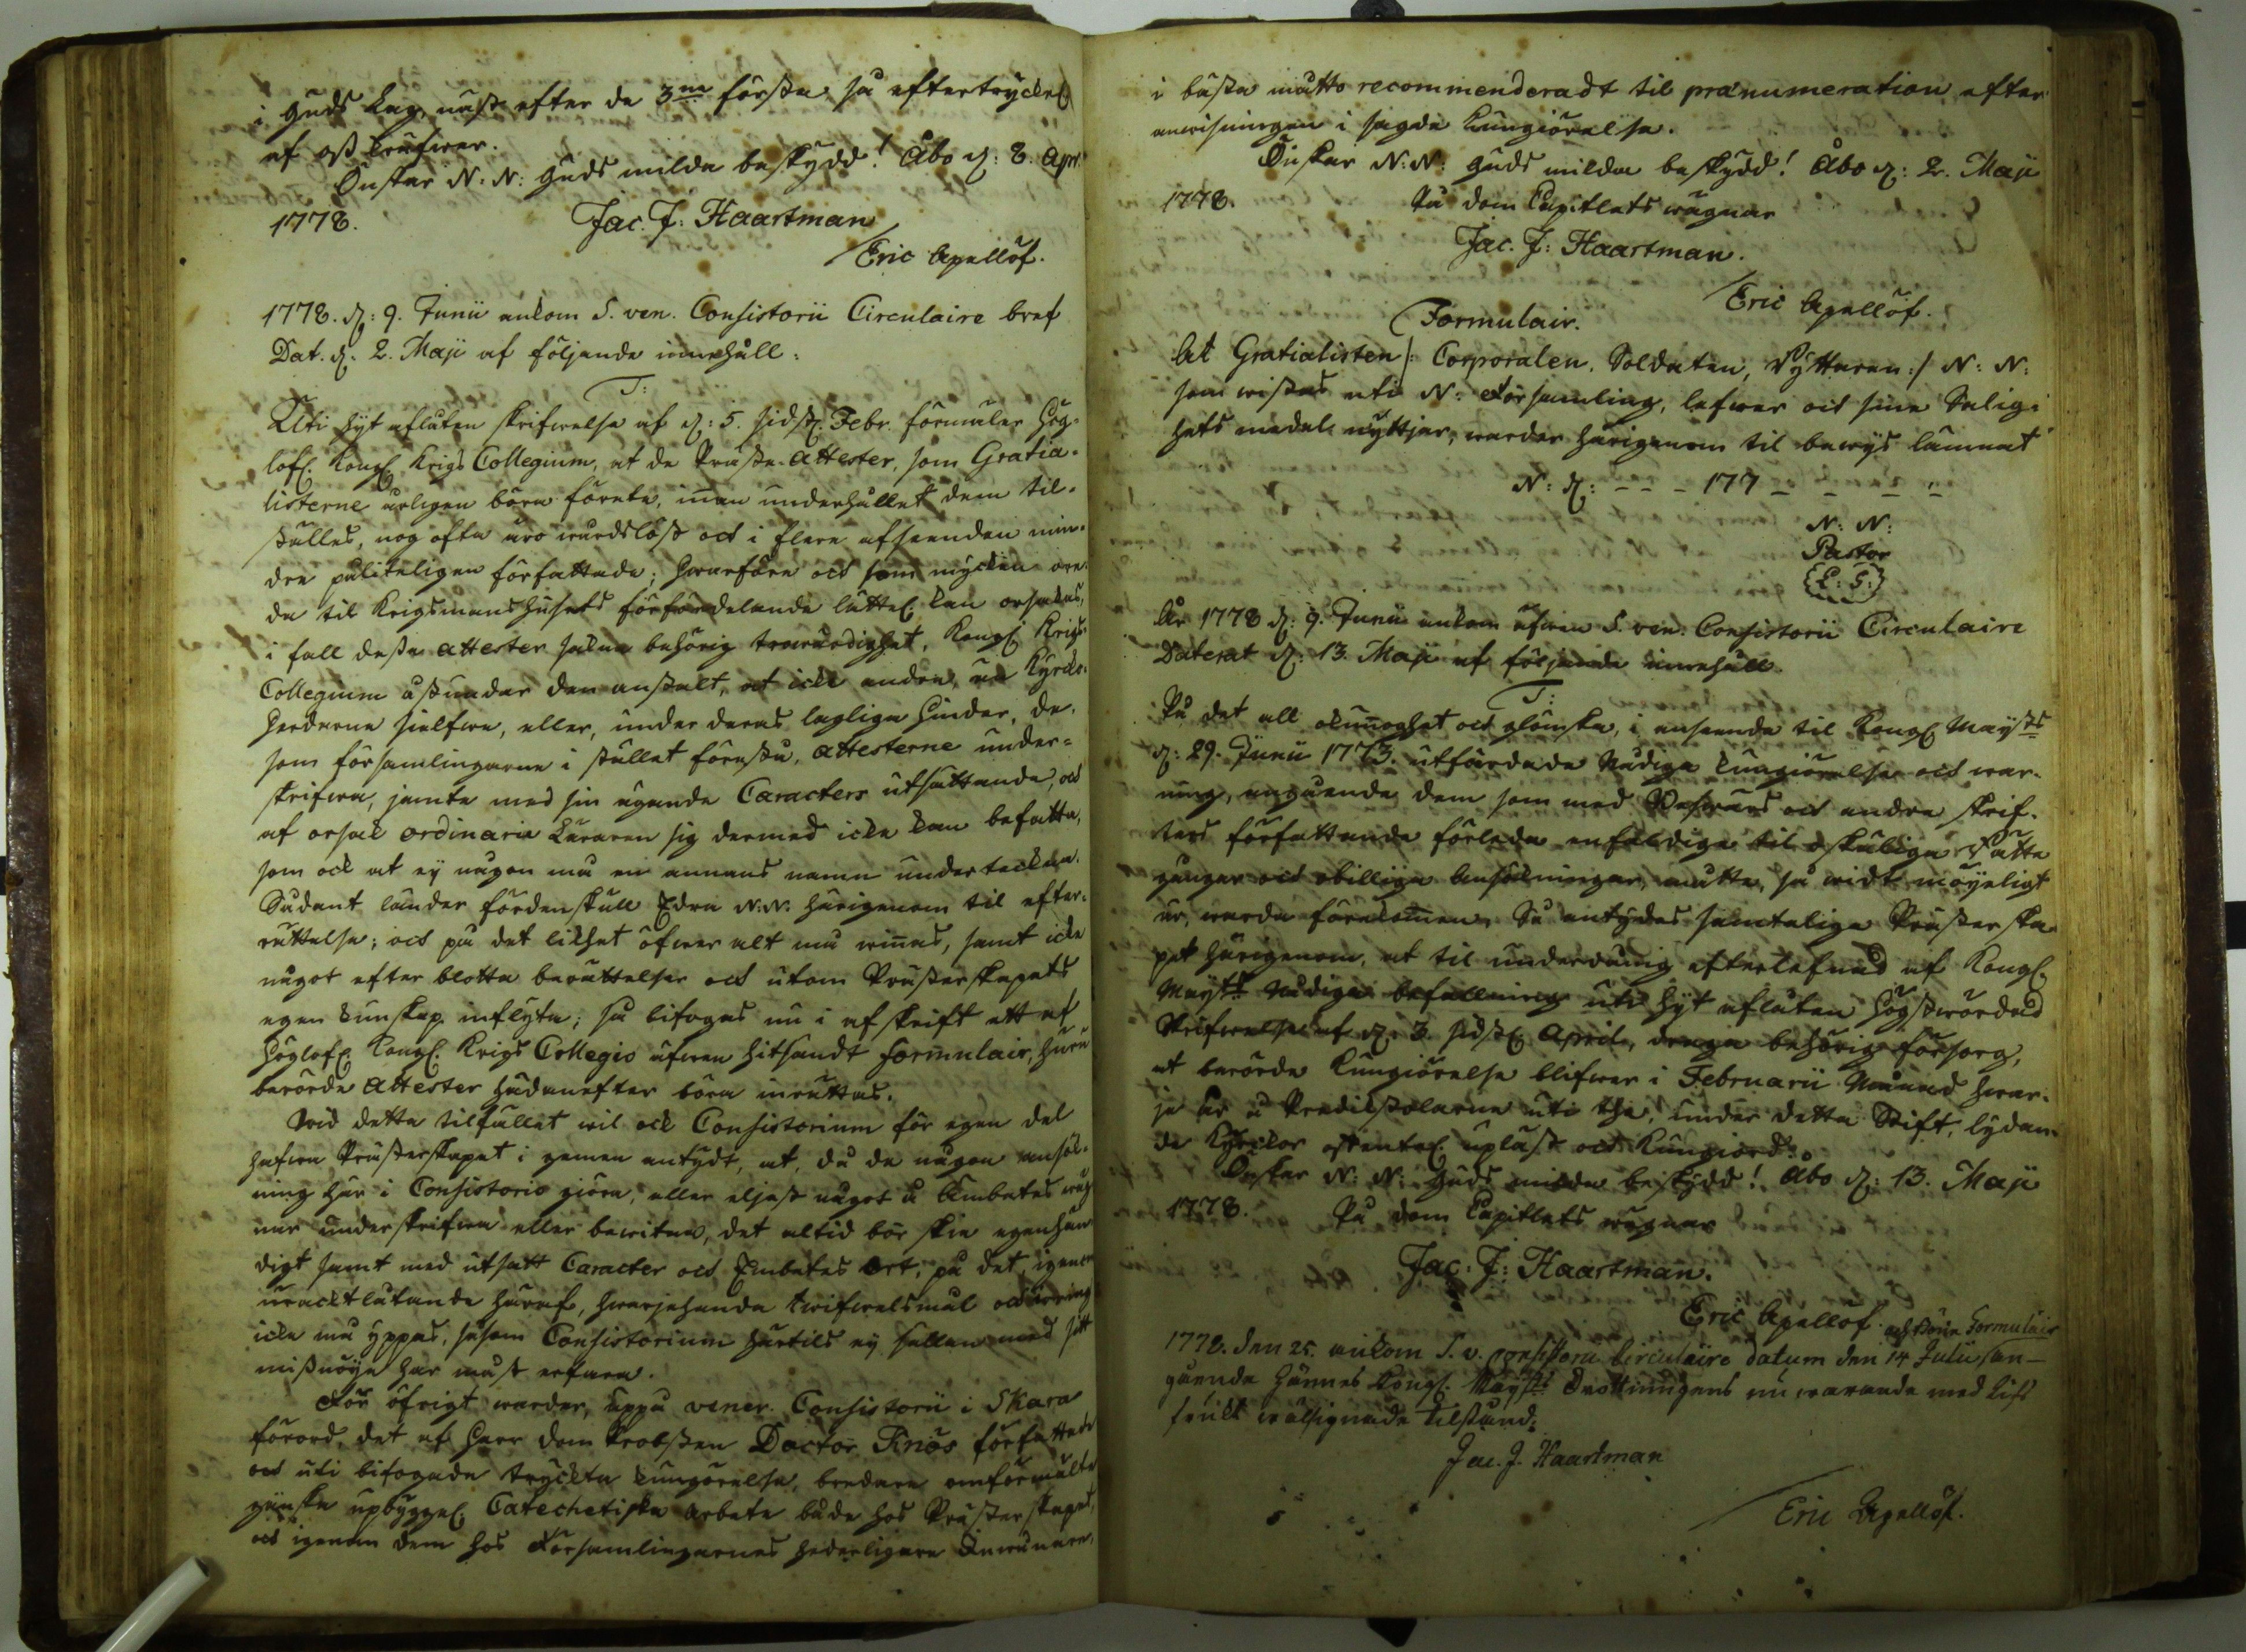 i Guds Lag, näst efter de 3ne första, så eftertryckel.
af oß kräfwer.
Önskar N: N: Guds milda beskydd! Åbo d: 8. Apr.
1778.
Jac. J: Haartman
/Eric Apellöf.
1778. d: 9. Junii ankom S. ven. Consistorii Circulaire bref
Dat. d. 2. Maji af följande innehåll:
T:
Uti hijt aflåten skrifwelse af d: 5. sidstl. Febr. förmäler Hög-
lofl. Kongl. Krigs Collegium, at de Präste-attester, som Gratia-
listerne årligen böra förete, innan underhållet dem til-
ställes, nog ofta äro wårdslöst och i flere afseenden min-
dre påliteligen författade; hwarföre och som mycken ore-
da til Krigsmanshusets förfördelande lättel. kan orsakas,
i fall deßa attester sakna behörig trowärdighet, Kongl. Krigs
Collegium åstundar den anstalt, at icke andre, än Kyrko-
herdarne sielfwe, eller, under deras lagliga hinder, de,
som församlingarne i stället förestå, attesterne under-
skrifwa, jämte med sin ägande Caracters utsättande, och
af orsak ordinarie Läraren sig dermed icke kan befatta,
som ock at ej någon må en annans namn underteckna.
Sådant länder fördenskull Edra N:N: härigenom til efter-
rättelse; och på det likhet öfwer alt må winnas, samt icke
något efter blotta berättelser och utom Prästerskapets
egen kunskap inflyta; så bifogas nu i afskrift ett af
Höglofl. Kongl. Krigs Collegio äfwen hitsändt formulair, huru
berörde attester hädanefter böra inrättas.
Wid detta tilfället wil ock Consistorium för egen del
hafwa Prästerskapet i gemen antydt, at, då de någon ansök-
ning här i Consistorio giöra, eller eljest något å Embetes wäg-
nar underskrifwa eller bewitna, det altid bör skie egenhän-
digt samt med utsatt Caracter och Embetes Ort, på det, igenom
uracktlåtande häraf, hwarjehanda twifwelsmål och irring
icke må yppas, såsom Consistorium härtils ej sällan med sitt
mißnöije har måst erfara.
För öfrigt warder, uppå vener. Consistorii i Skara
förord, det af Herr Dom Probsten Doctor Knös författade
och uti bifogade tryckta kungörelse, bredare omförmälte
ganska upbyggel. Catechetiska Arbete både hos Prästerskapet,
och igenom dem hos Församlingarnes hederligare Inwånare,
i bästa måtto recommenderadt til prænumeration efter
anwisningen i sagde Kungiörelse.
Önskar N:N: Guds milda beskydd! Åbo d: 2. Maji
1778.
På Dom Capitlets wägnar
Jac. J: Haartman.
/Eric Apellöf.
Formulair.
At Gratialisten /: Corporalen, Soldaten, Ryttaren :/ N: N:
som wistas uti N: Församling, lefwer och sine Salig-
hets medel nyttjar, warder härigenom til bewijs lämnat
N: d: - - - 177 - - - -
N: N:
Pastor
L: S:
År 1778 d: 9. Junii ankom äfwen S. ven. Consistorii Circulaire
Daterat d: 13. Maji af följande innehåll.
T:
På det all okunnoghet och glömska, i anseende til Kongl. Maijsts
d: 29. Junii 1773. utfärdade Nådige Kungiörelse och war-
ning, angående dem som med Beswärs och andra skrif-
ters författande förleda enfaldige til oskälige Rätte
gångar och obillige Ansökningar, måtte, så widt möijeligt
är, warda förekommen, Så antydes samtelige Prästerska-
pet härigenom, at til underdånig efterlefnad af Kongl.
Maijts Nådige befallning uti hijt aflåten högstwördad
Skrifwelse af d: 3. sidstl. April, draga behörig försorg,
at berörde Kungiörelse blifwer i Februarii Månad hwar-
je år å Predikstolarne uti the, under detta Stift, lydan-
de Kyrckor ostentel. upläst och Kungiord.
Önskar N: N: Guds milda beskydd! Åbo d: 13. Maji
1778.
På Dom Capitlets wägnar
Jac: J: Haartman.
Eric Apellöf.
och Böne Formulair
1778. den 25. ankom S. v. Consistorii Circulaire datum den 14 Julii an-
gående Hännes Kongl. Maijsts Drottningens nu warande med Lifs
frukt wälsignade tilstånd.
Jac. J. Haartman
/Eric Apellöf.